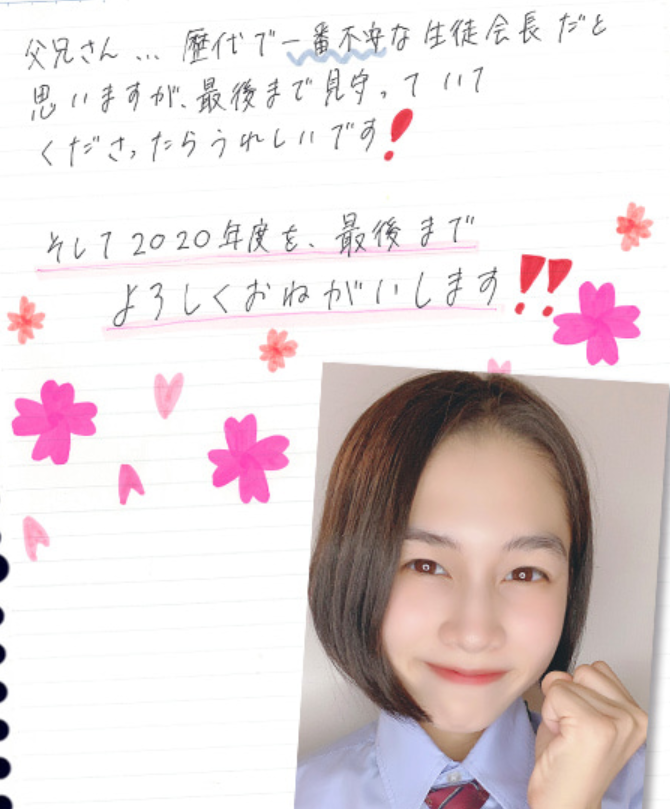 父兄さん... 歴代で一番不安な生徒会長だと
思いますが、最後まで見守っていて
くださったらうれしいです!
そして2020年度を、最後まで
よろしくおねがいします!!